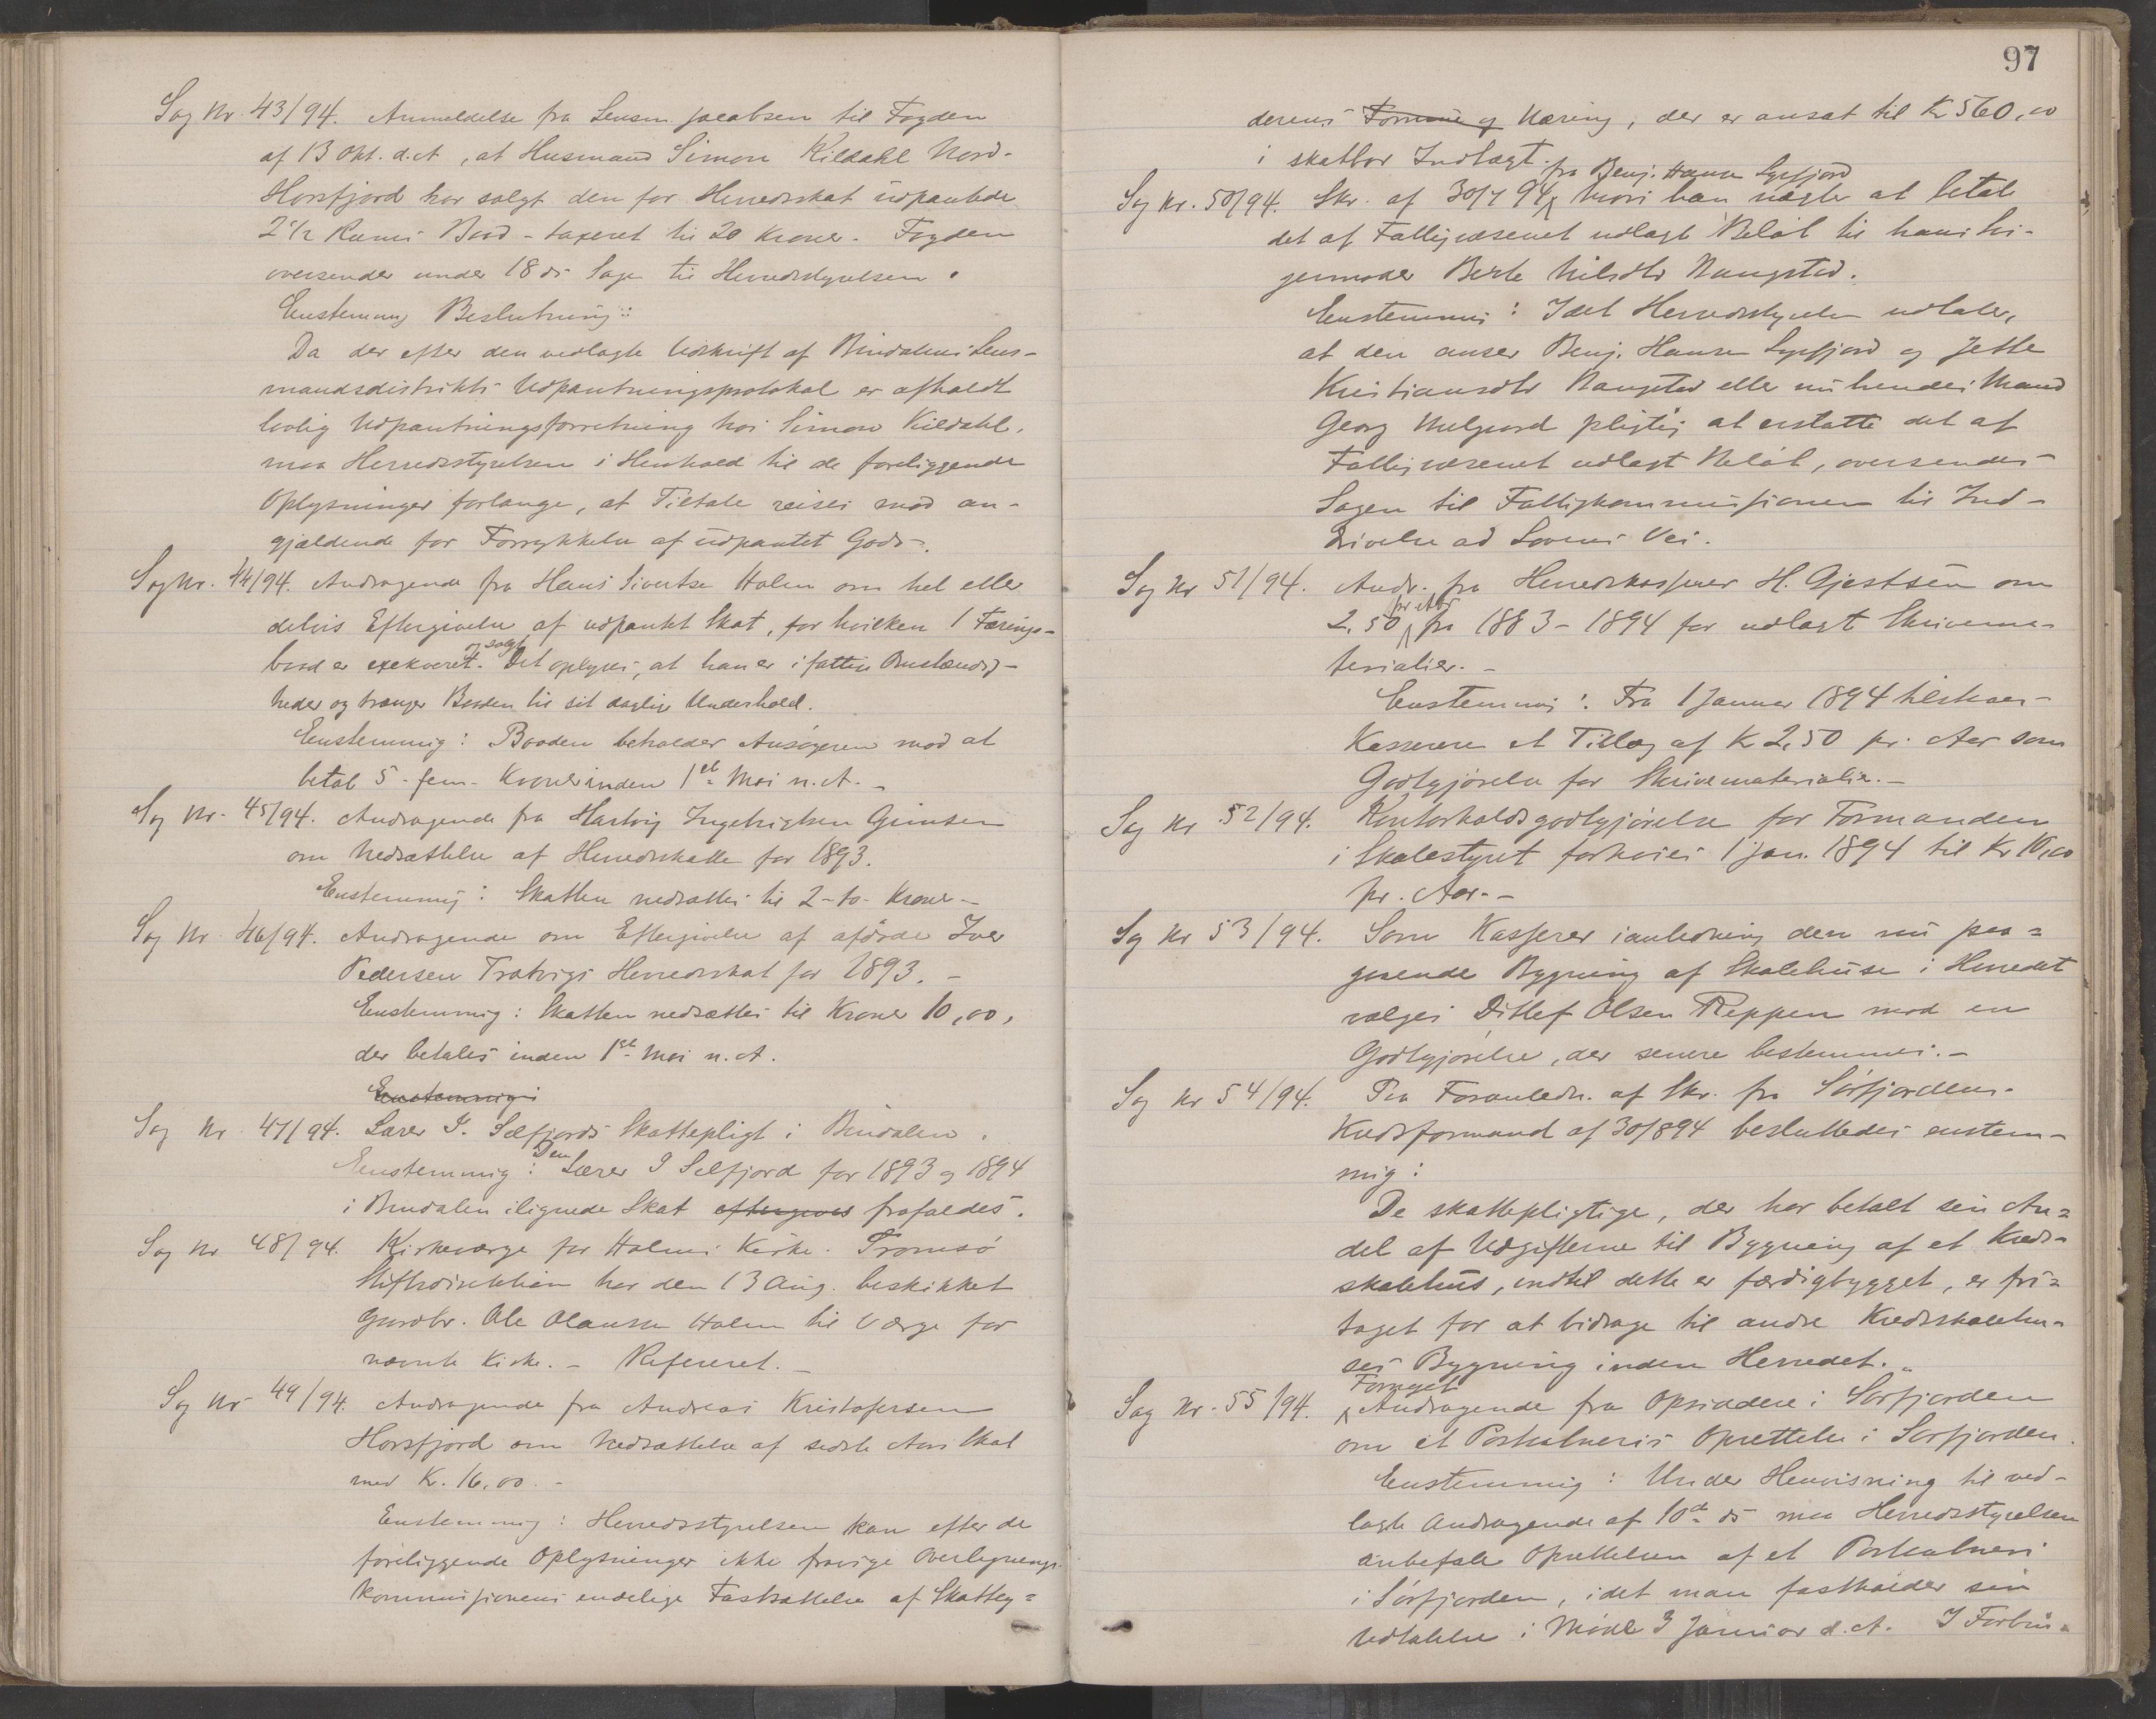 Sag Nr. 43/94. Anmeldelse fra Lensm Jacobsen til Fogden
af 13 Okt. d.A, at Husmand Simon Kildahl Nord-
Horsfjord har solgt den for Herredsskat udpantede
2 1/2 Rums Baad - taxeret til 20 Kroner. Fogden
oversender under 18 ds Sagen til Herredsstyrelsen.
Enstemmig Beslutning:
Da der efter den vedlagte Udskrift af Bindalens Lens-
mandsdistrikts Udpantningsprotokol er afholdt
lovlig Udpantningsforretning hos Simon Kildahl,
maa Herredsstyrelsen i Henhold til de foreliggende
Oplysninger forlange, at Tiltale reises mod an-
gjældende for Forrykkelse af udpantet Gods.
Sag Nr. 44/94. Andragende fra Hans Sivertsen Holm om hel eller
delvis Eftergivelse af udpantet Skat, for hvilken 1 Færings-
baad er exekveret og solgt. Det oplyses, at han er i fattige Omstændig-
heder og trænger Baaden til sit daglige Underhold.
Enstemmig: Baaden beholder Ansøgeren mod at
betale 5 - fem - Kroner inden 1ste Mai n.A. -
Sag Nr. 45/94. Andragende fra Hartvig Ingebrigtsen Gimsen
om Nedsættelse af Herredsskatten for 1893.
Enstemmig: Skatten nedsættes til 2 - to - Kroner -
Sag Nr 46/94. Andragende om Eftergivelse af afdøde Iver
Pedersen Tratvigs Herredsskat for 1893. -
Enstemmig: Skatten nedsættes til Kroner 10,00,
der betales inden 1ste Mai n.A.
Enstemmig:
Sag Nr 47/94. Lærer I. Selfjords Skattepligt i Bindalen.
Enstemmig: Den Lærer I Selfjord for 1893 og 1894
i Bindalen ilignede Skat eftergives frafaldes.
Sag Nr 48/94. Kirkeværge for Holms Kirke. Tromsø
Stiftsdirektion har den 13 Aug. beskikket
Gaardbr. Ole Olausen Holm til Værge for
nævnte Kirke. - Refereret. -
Sag Nr 49/94. Andragende fra Andreas Kristofersen
Horsfjord om Nedsættelse af sidste Aars Skat
med Kr. 16,00. -
Enstemmig: Herredsstyrelsen kan efter de
foreliggende Oplysninger ikke fravige Overlignings-
kommissionens endelige Fastsættelse af Skattey=
97
derens Formue og Næring, der er ansat til Kr 560,00
i skatbar Indtægt.
Sag Nr. 50/94. Skr. af 30/7 94 fra Benj. Hansen hvori han nægter at betale
det af Fattigvæsenet udlagte Beløb til hans Svi-
germoder Berte Nilsdtr Nangstad.
Enstemmig: Idet Herredsstyrelsen udtaler,
at den anser Benj. Hansen og Jette
Kristiansdtr Nangstad eller nu hendes Mand
Georg pligtig at erstatte det af
Fattigvæsenet udlagt Beløb, oversendes
Sagen til Fattigkommissionen til Ind-
drivelse ad Lovens Vei.
Sag Nr 51/94. Andr. fra Herredskasserer H. Gjestsen om
2,50 pr Aar fra 1883 - 1894 for udlagt Skrivema-
terialier. -
Enstemmig: Fra 1 Januar 1894 tilstaaes
Kassereren et Tillæg af Kr 2,50 pr. Aar som
Godtgjørelse for Skrivematerialier. -
Sag Nr 52/94. Kontorholdsgodtgjørelse for Formanden
i Skolestyret forhøies 1 Jan. 1894 til Kr 10,00
pr. Aar. -
Sag Nr 53/94. Som Kasserer i anledning den nu paa=
gaaende Bygning af Skolehuse i Herredet
vælges Ditlef Olsen Reppen mod en
Godtgjørelse, der senere bestemmes. -
Sag Nr 54/94. Paa Foranledn. af Skr. fra Sørfjordens
Kredsformand af 30/8 94 besluttedes enstem-
mig:
De skattepligtige, der har betalt sin An=
del af Udgifterne til Bygning af et Kreds-
skolehus, indtil dette er færdigbygget, er fri=
taget for at bidrage til andre Kredsskolehu-
ses Bygning inden Herredet. -
Sag Nr. 55/94. Fornyet Andragende fra Opsiddere i Sørfjorden
om et Postaabneris Oprettelse i Sørfjorden.
Enstemmig: Under Henvisning til ved-
lagte Andragende af 10de ds maa Herredsstyrelsen
anbefale Oprettelsen af et Postaabneri
i Sørfjorden, idet man fastholder sin
Udtalelse i Møde 3 Januar d.A. I Forbin-